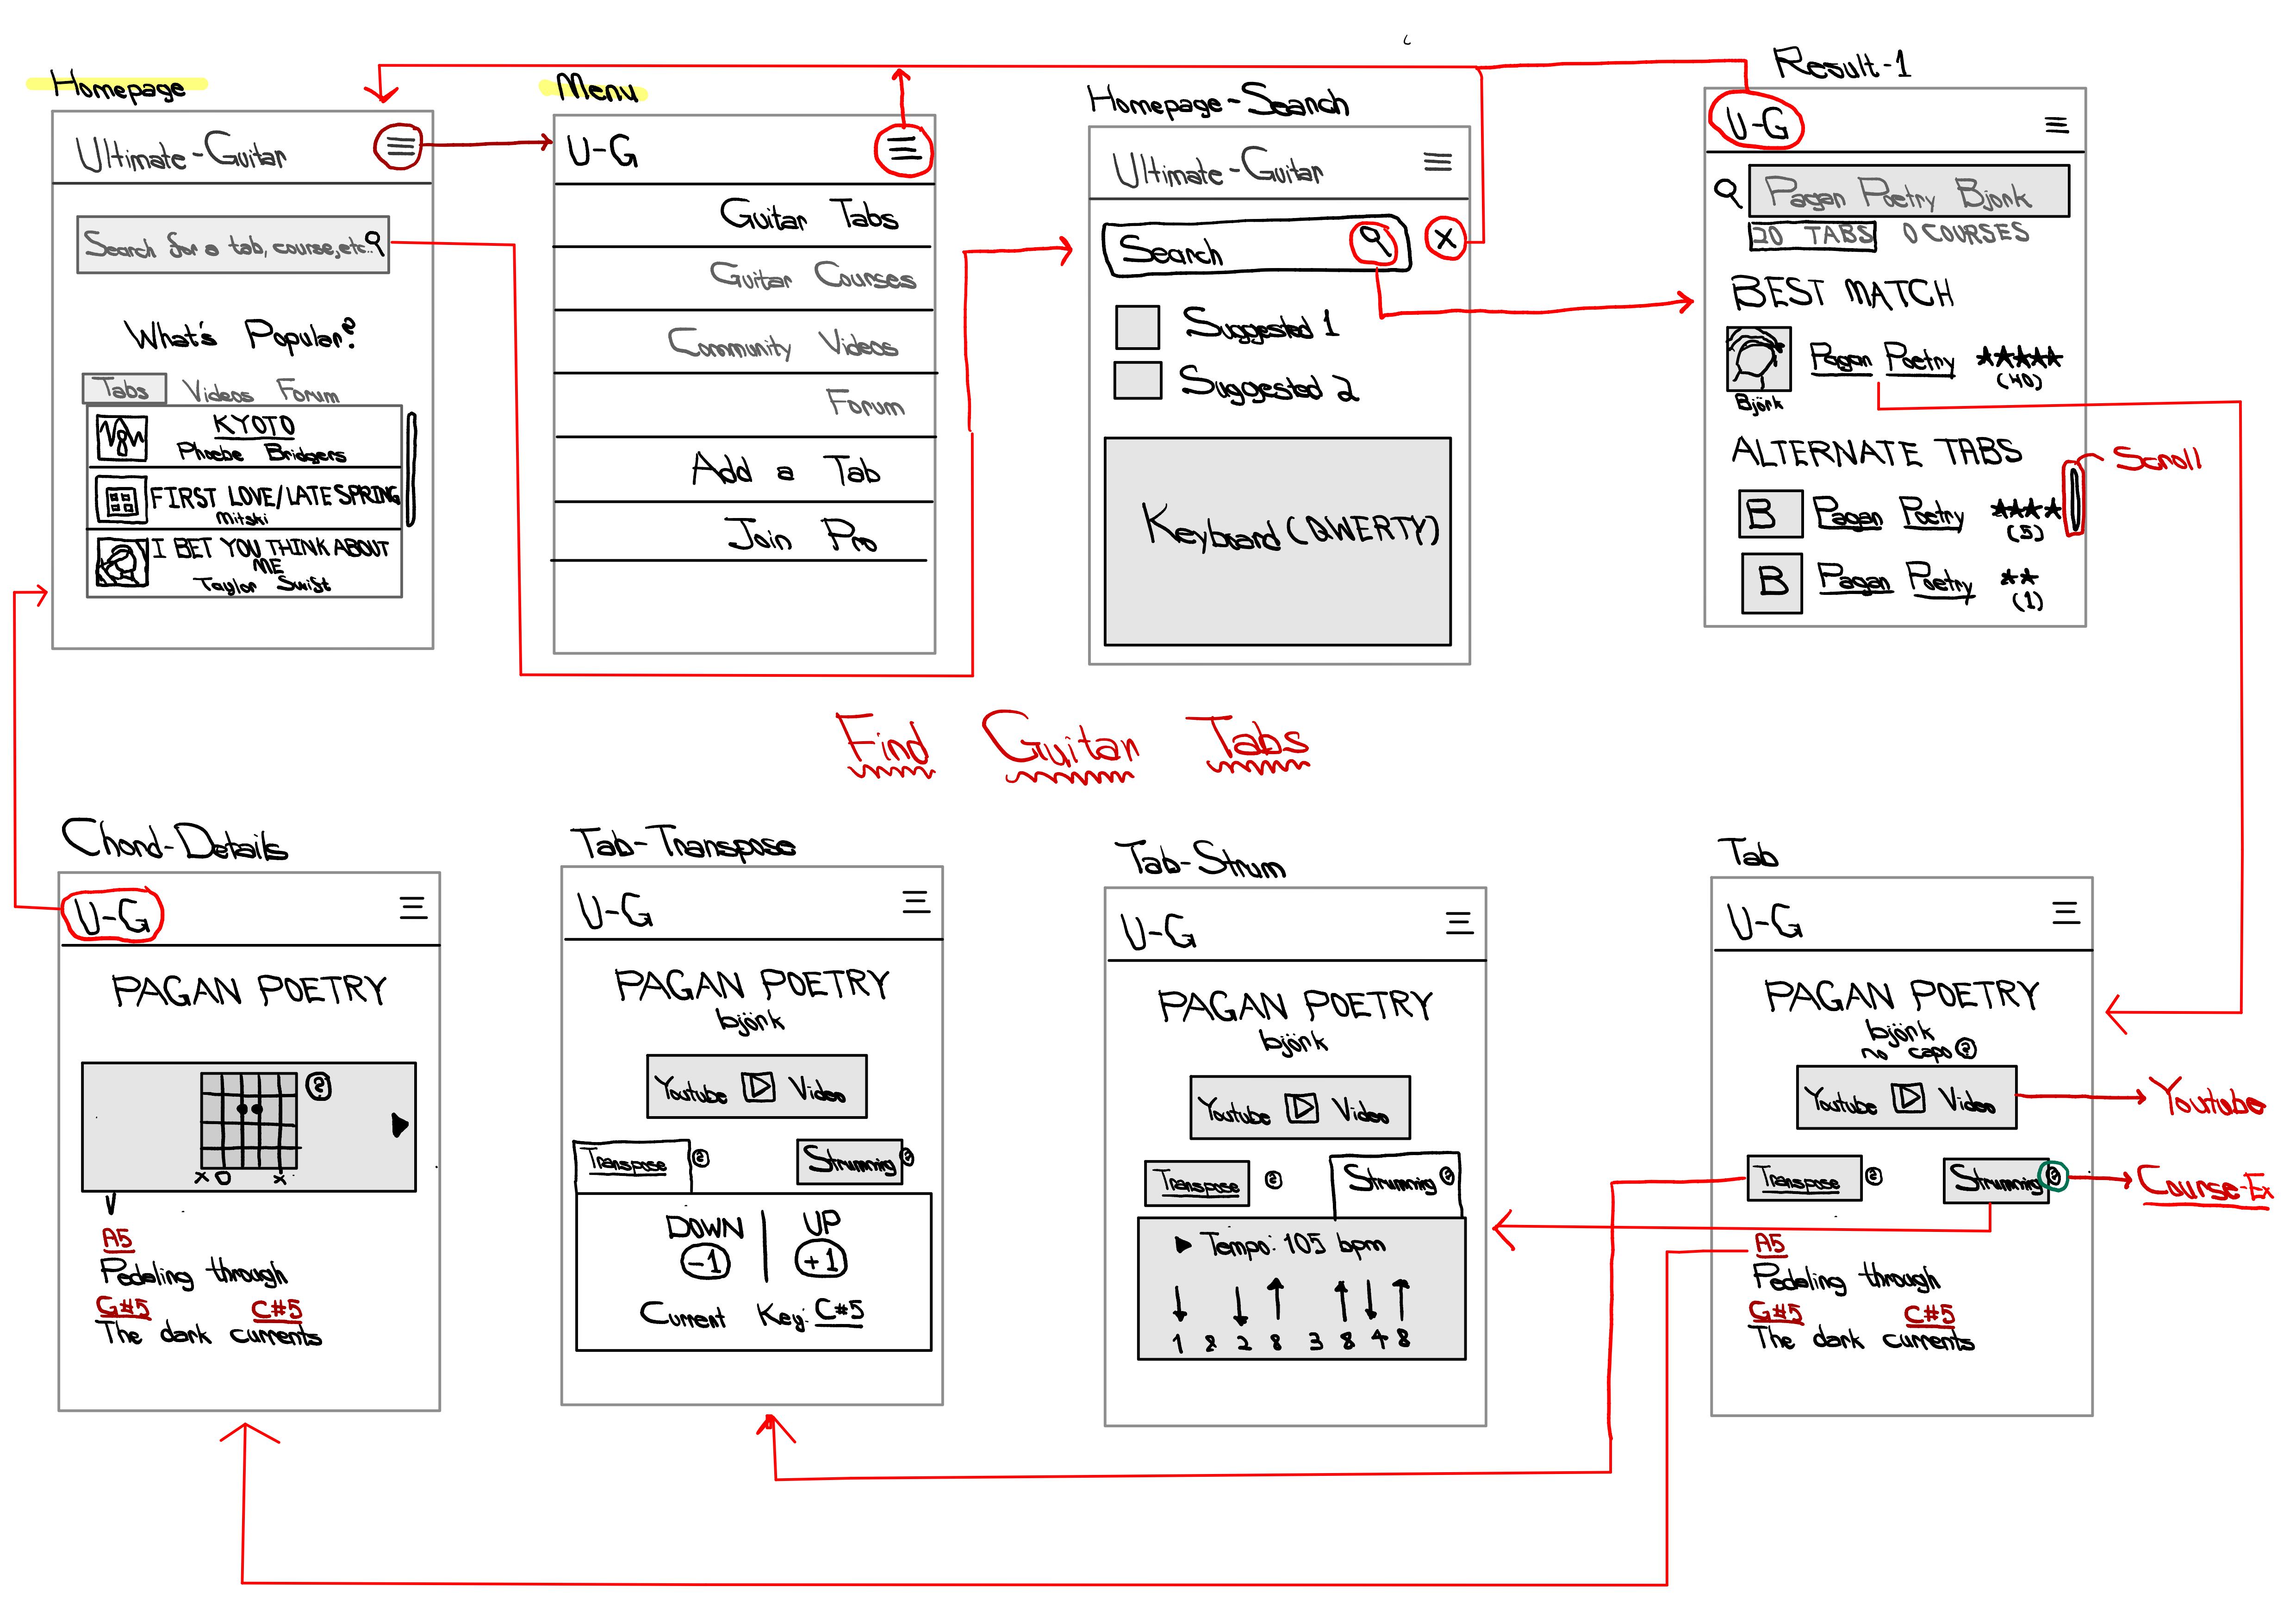 Homepage
Ultimate-Guitar
Search for a tab, course, etc..
What's Popular?
Tabs Videos Forum
KYOTO
Phoebe Bridgers
FIRST LOVE/LATE SPRING
Mitski
I BET YOU THINK ABOUT
ME
Taylor Swift
Menu
U-G
Guitar Tabs
Guitar Courses
Community Videos
Forum
Add a Tab
Join Pro
Homepage-Search
Ultimate-Guitar
Search
X
Suggested 1
Suggested 2
Keyboard (QWERTY)
Result-1
U-G
Pagan Poetry Bjork
20 TABS 0 COURSES
BEST MATCH
Pagan Poetry ★★★★★
(40)
Björk
ALTERNATE TABS
Scroll
B Pagan Poetry ★★★★
(5)
B Pagan Poetry ★★
(1)
Find Guitar Tabs
Chord-Details
U-G
PAGAN POETRY
?
x o x
A5
Pedaling through
G#5 C#5
The dark currents
Tab-Transpose
U-G
PAGAN POETRY
björk
Youtube Video
Transpose ? Strumming ?
DOWN UP
-1 +1
Current Key: C#5
Tab-Strum
U-G
PAGAN POETRY
björk
Youtube Video
Transpose ? Strumming ?
Tempo: 105 bpm
1 & 2 & 3 & 4 &
Tab
U-G
PAGAN POETRY
björk
no capo ?
Youtube Video
Youtube
Transpose ? Strumming ?
Course-Ex
A5
Pedaling through
G#5 C#5
The dark currents